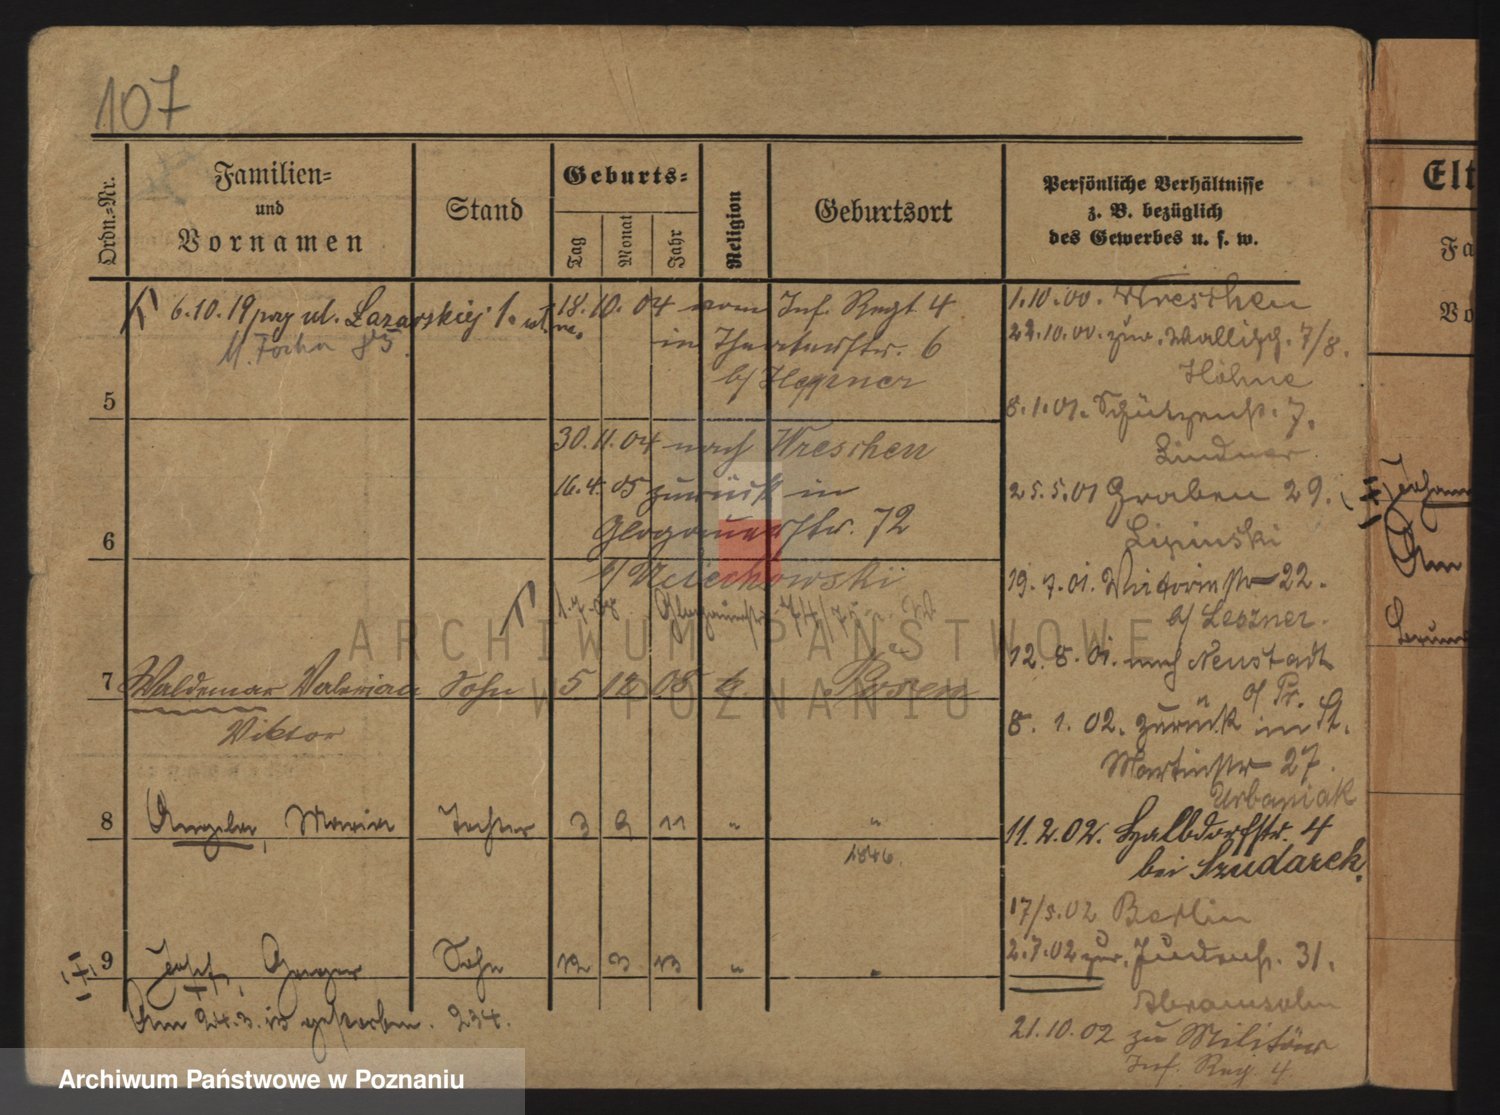 107
Ordn.-Nr.
Familien-
und
Vornamen
Stand
Geburts-
Tag
Monat
Jahr
Religion
Geburtsort
Persönliche Verhältnisse
z. B. bezüglich
des Gewerbes u. s. w.
6.10.19 przy ul. Łazarskiej 1.
M. Focha 85
18.10.04 vom Inf. Regt 4
in Theaterstr. 6
b/ Heppner
5
30.11.04 nach Wreschen
16.4.05 zurück in
Glogauerstr. 72
6
b/ Uciechowski
1.7.08 Glogauerstr. 74/75
7 Waldemar Valerian Sohn 5 12 08 k. Posen
Viktor
8 Angela, Maria Tochter 3 2 11 " "
1846.
9 Josef, Sohn 12 3 13 " "
Am 24.3.13 gestorben. 234.
1.10.00. Wreschen
22.10.00. zur. Wallisch. 7/8.
Höhne
8.1.01. Schützenstr. 7.
Lindner
25.5.01 Graben 29.
Lipinski
19.7.01. Victoriastr 22.
b/ Leszner.
12.8.01. nach Neustadt
o/ Pr.
8.1.02. zurück in St.
Martinstr 27.
Urbaniak
11.2.02. Halbdorfstr. 4
bei Szudarek.
17/5.02 Berlin
2.7.02 zur. Judenstr. 31.
Abramsohn
21.10.02 zu Militär
Inf. Reg. 4
Elt
Fa
Vo
Johann
Am
ARCHIWUM PAŃSTWOWE
W POZNANIU
Archiwum Państwowe w Poznaniu